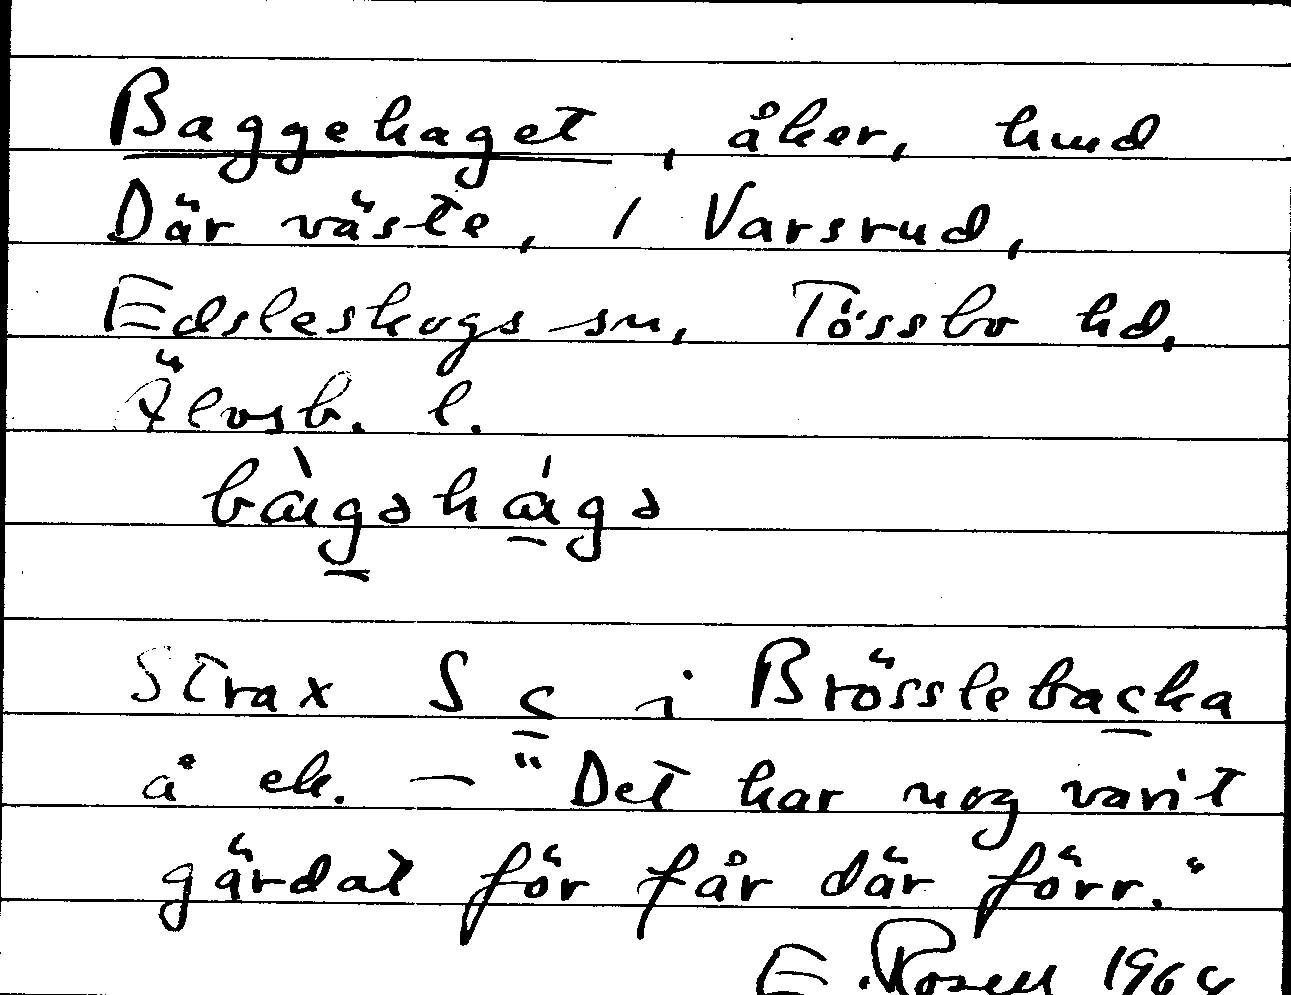 Baggehaget, åker, hmd
Där väste, 1 Varsrud,
Edsleskogs sn, Tössbo hd,
Älvsb. l.
Strax S c i Brösslebacka
å ek. — "Det har nog varit
gärdat för får där förr."
E. Rosell 1964